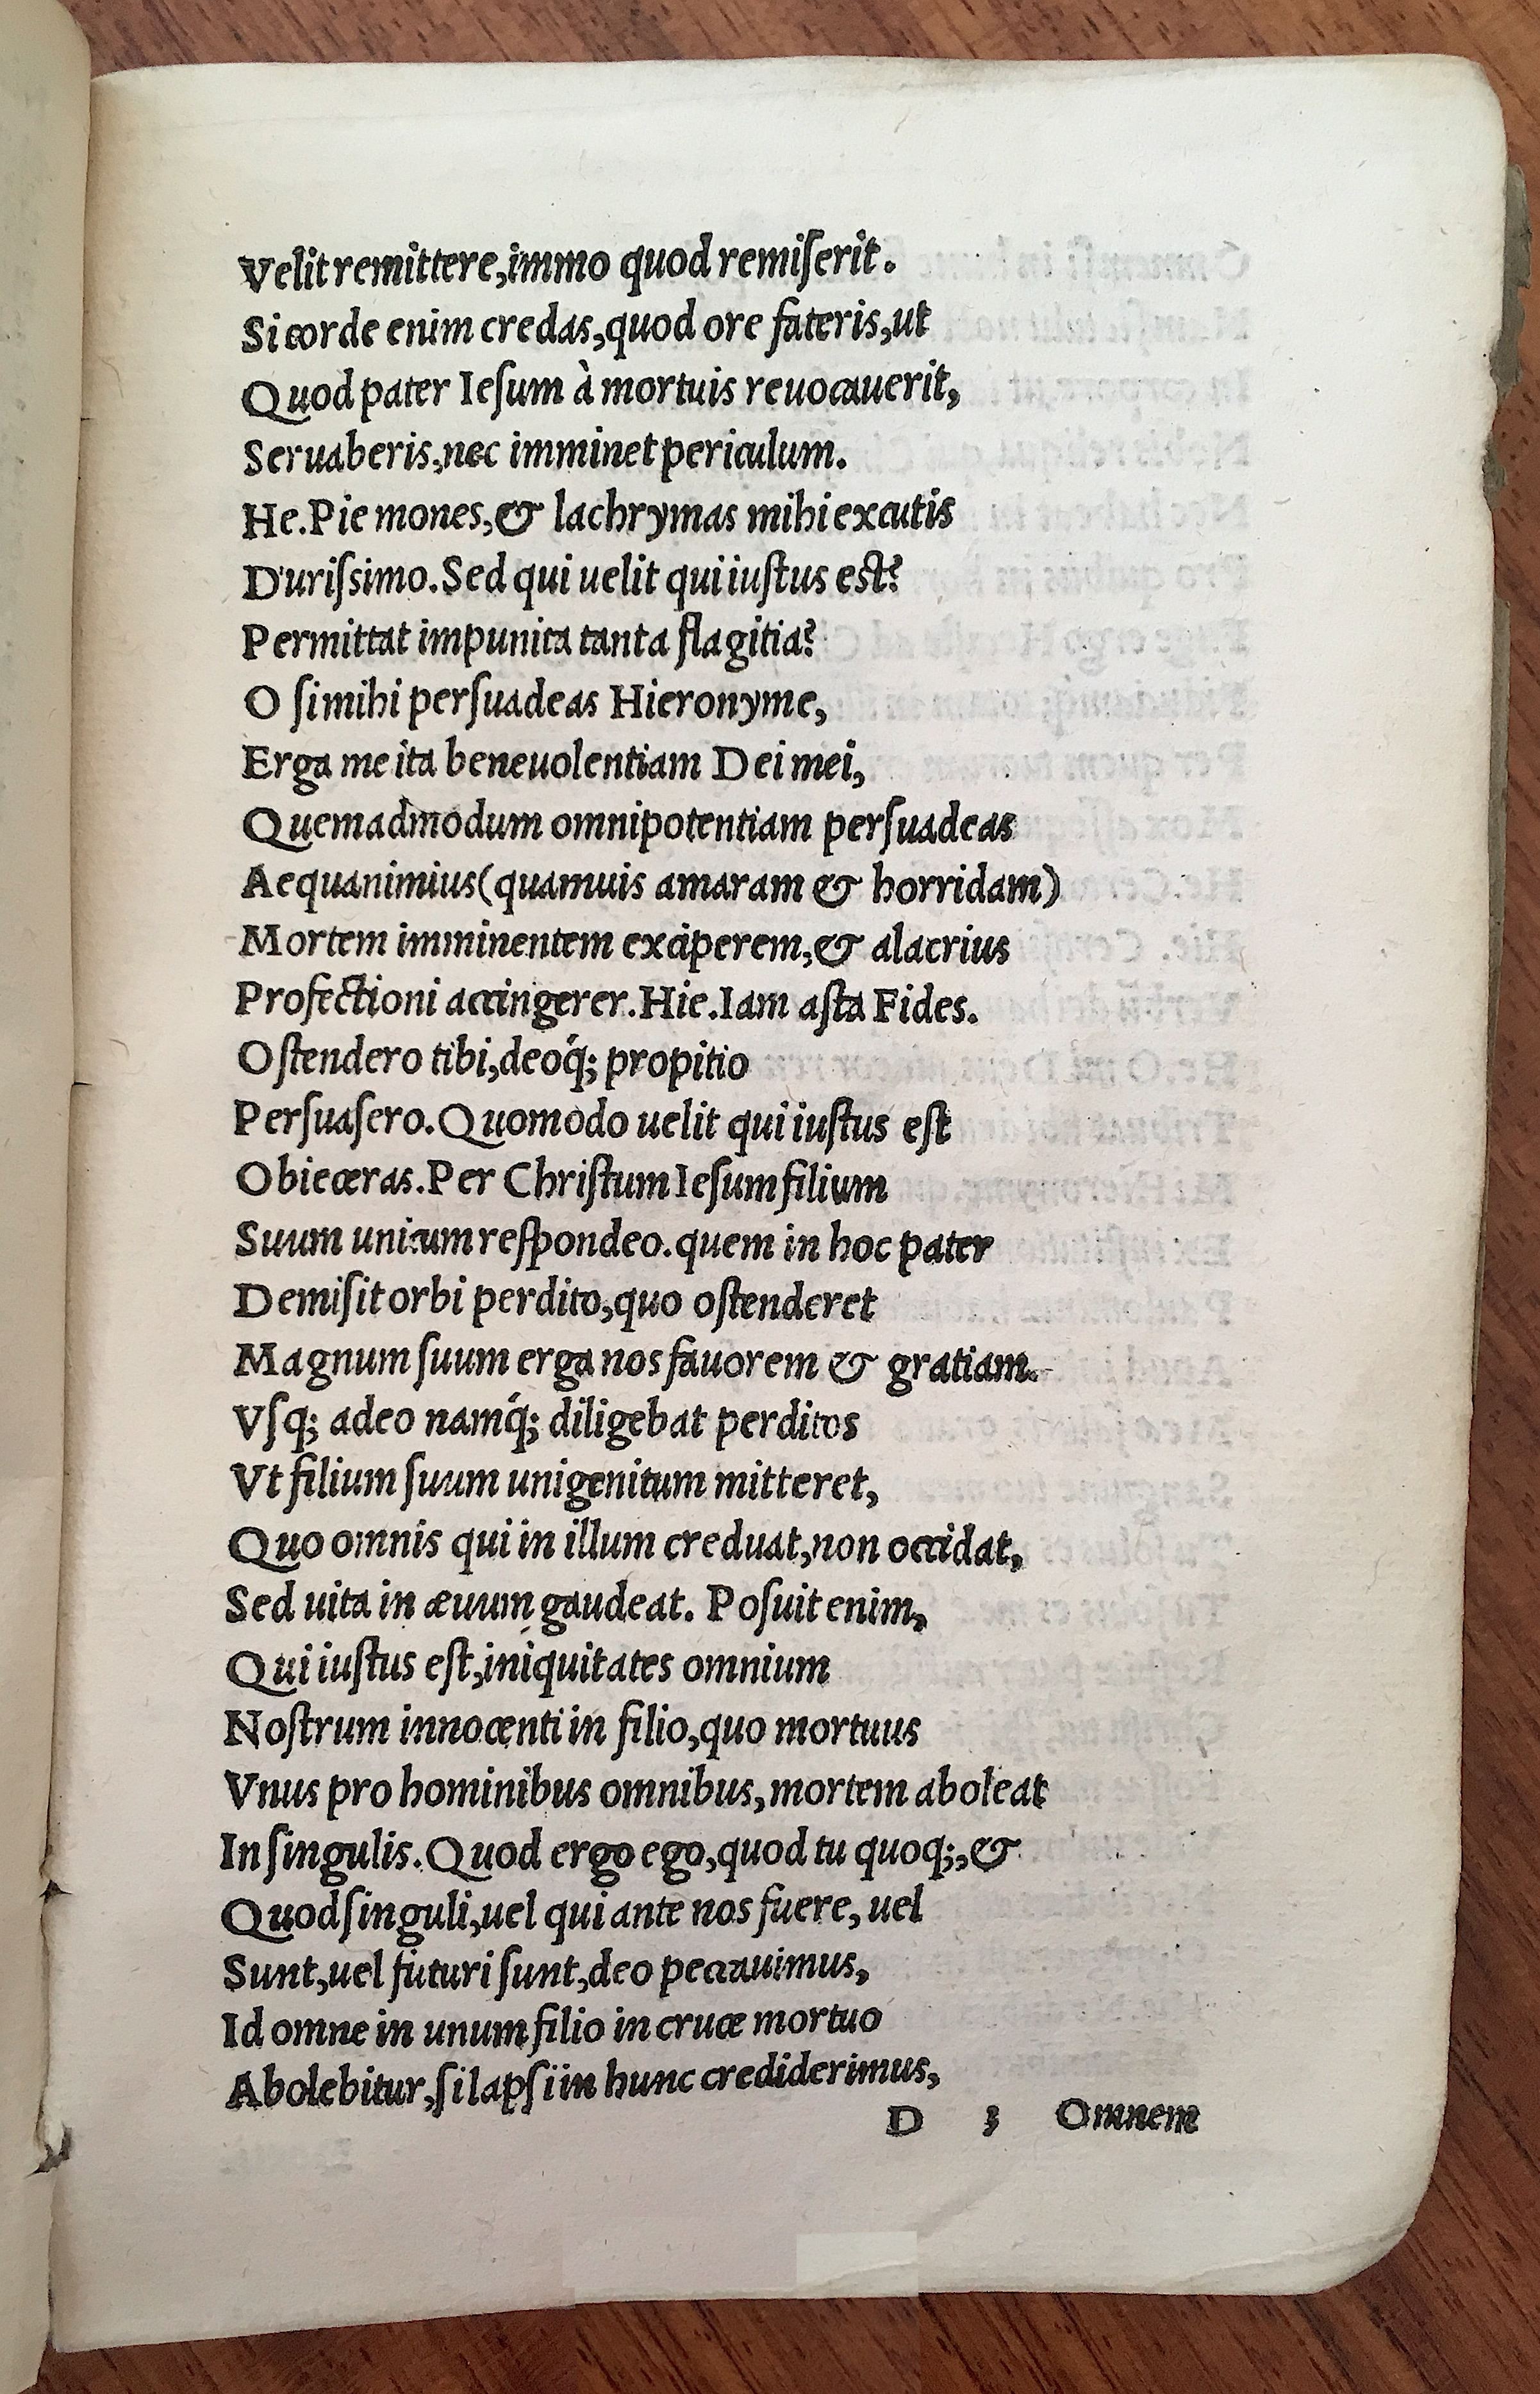 Velit remittere,immo quod remiſerit.
Si corde enim credas,quod ore fateris,ut
Quod pater Ieſum à mortuis reuocauerit,
Seruaberis,nec imminet periculum.
He.Pie mones,& lachrymas mihi excutis
Duriſsimo.Sed qui uelit qui iuſtus eſt?
Permittat impunita tanta flagitia?
O ſi mihi perſuadeas Hieronyme,
Erga me ita beneuolentiam Dei mei,
Quemadmodum omnipotentiam perſuadeas
Aequanimius(quamuis amaram & horridam)
Mortem imminentem exciperem,& alacrius
Profectioni accingerer.Hie.Iam aſta Fides.
Oſtendero tibi,deoq́; propitio
Perſuaſero.Quomodo uelit qui iuſtus eſt
Obieceras.Per Chriſtum Ieſum filium
Suum unicum reſpondeo.quem in hoc pater
Demiſit orbi perdito,quo oſtenderet
Magnum ſuum erga nos fauorem & gratiam.
Vſq; adeo namq́; diligebat perditos
Vt filium ſuum unigenitum mitteret,
Quo omnis qui in illum creduat,non occidat,
Sed uita in æuum gaudeat. Poſuit enim,
Qui iuſtus eſt,iniquitates omnium
Noſtrum innocenti in filio,quo mortuus
Vnus pro hominibus omnibus,mortem aboleat
In ſingulis.Quod ergo ego,quod tu quoq;,&
Quod ſinguli,uel qui ante nos fuere,uel
Sunt,uel futuri ſunt,deo peccauimus,
Id omne in unum filio in cruce mortuo
Abolebitur,ſi lapſi in hunc crediderimus,
D 3 Omnem